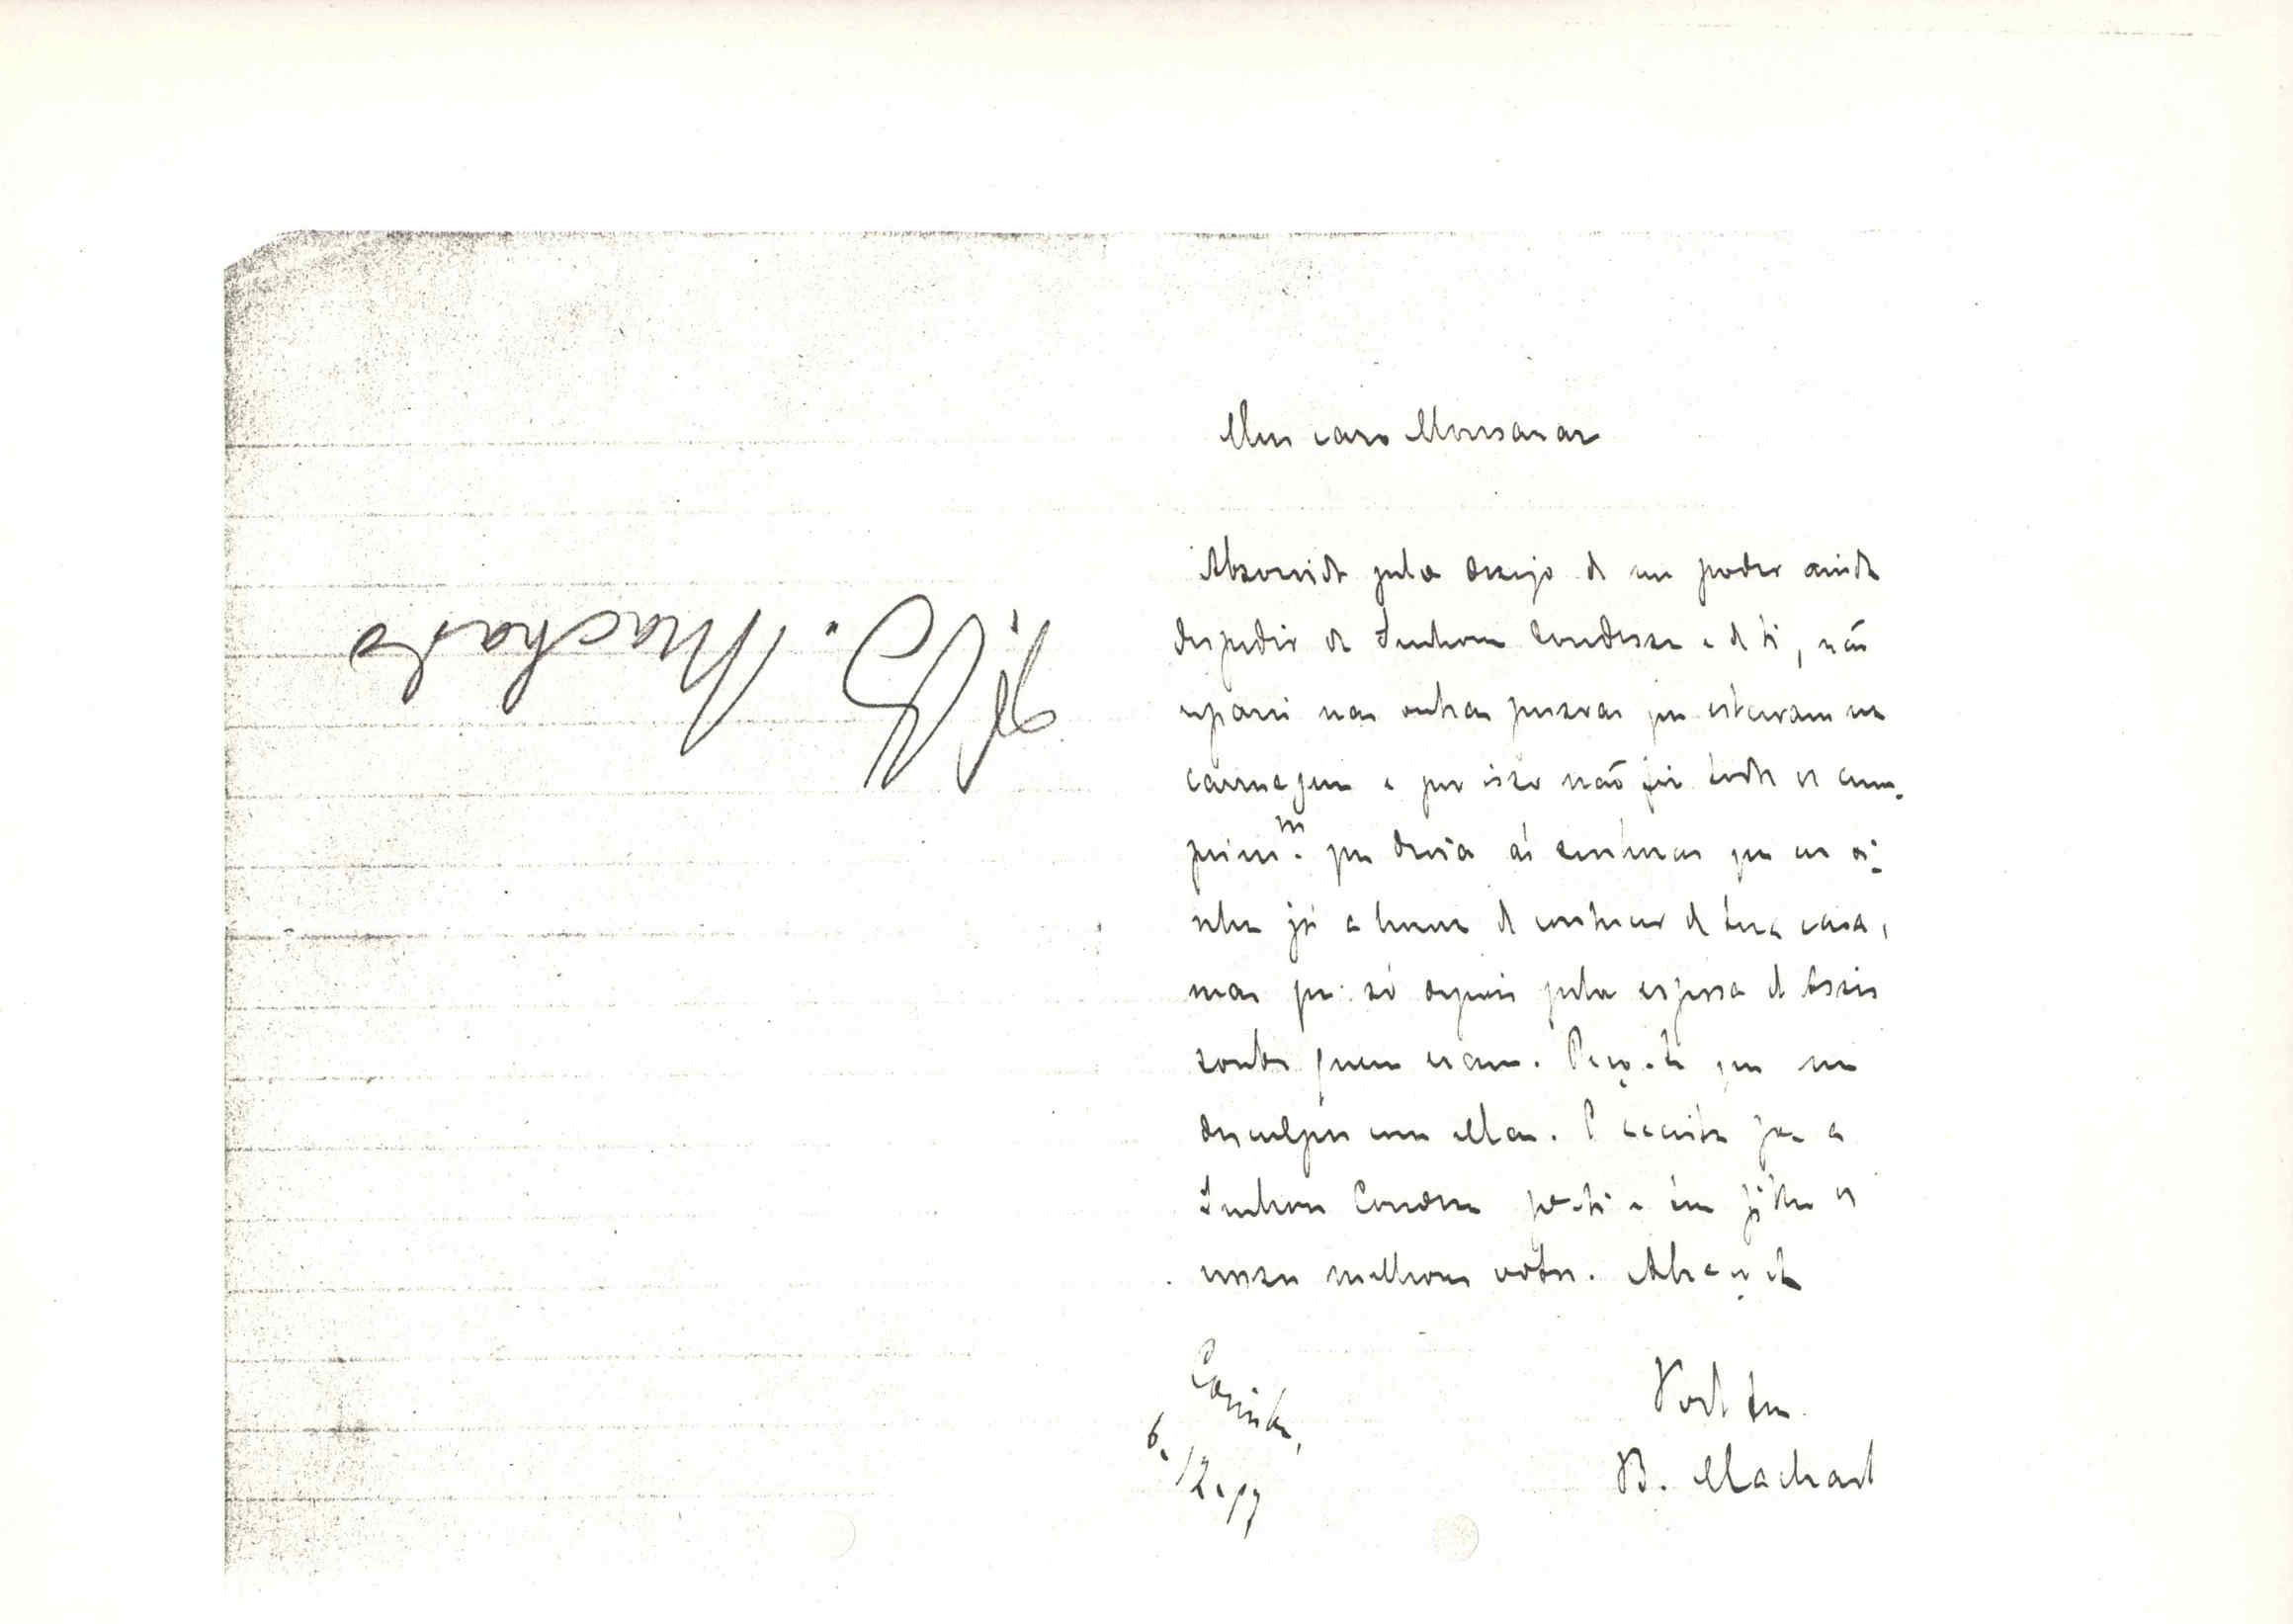 Meu caro Monsaraz
Absorvido pelo desejo de me poder ainda
despedir da Senhora Condessa e de ti, não
reparei nas outras pessoas que estavam na
carruagem e por isso não fiz todos os cum-
prim.m que devia ás senhoras que eu ti-
nha já a honra de conhecer de tua casa,
mas que só depois pela esposa d'Assis
soube quem eram. Peço-te que me
desculpes com ellas. E acceita pa a
Senhora Condessa pa ti e teu filho os
nossos melhores votos. Abraça-te
Todo teu
B. Machado
Coimbra,
6.12.97
B. Machado